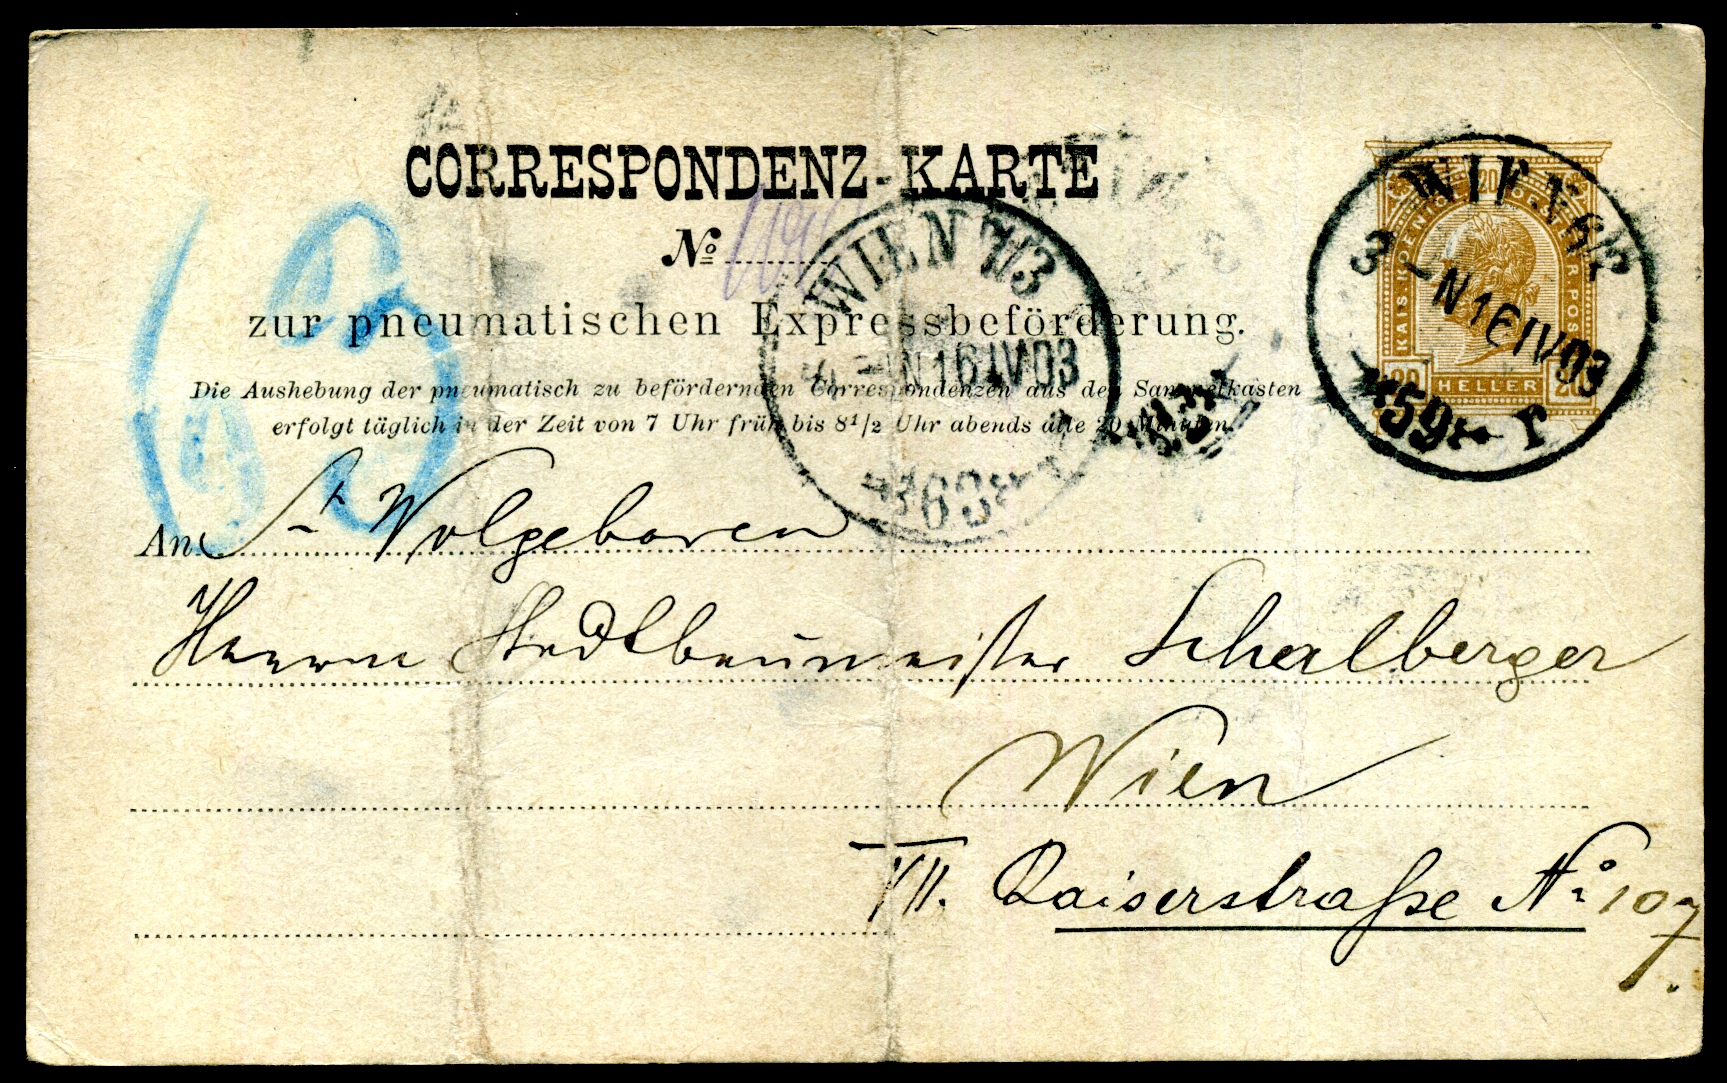 CORRESPONDENZ-KARTE
No
zur pneumatischen Expressbeförderung.
Die Aushebung der pneumatisch zu befördernden Correspondenzen aus den Sammelkasten
erfolgt täglich in der Zeit von 7 Uhr früh bis 8½ Uhr abends alle 20 Minuten.
WIEN 7/3
-N 16 IV 03
*63*
KAIS. KOENIG
20 HELLER 20
WIEN
3 -N 16 IV 03
*59* T
An Wolgeboren
Herrn Stadtbaumeister Schalberger
Wien
VII. Kaiserstraße No 107.